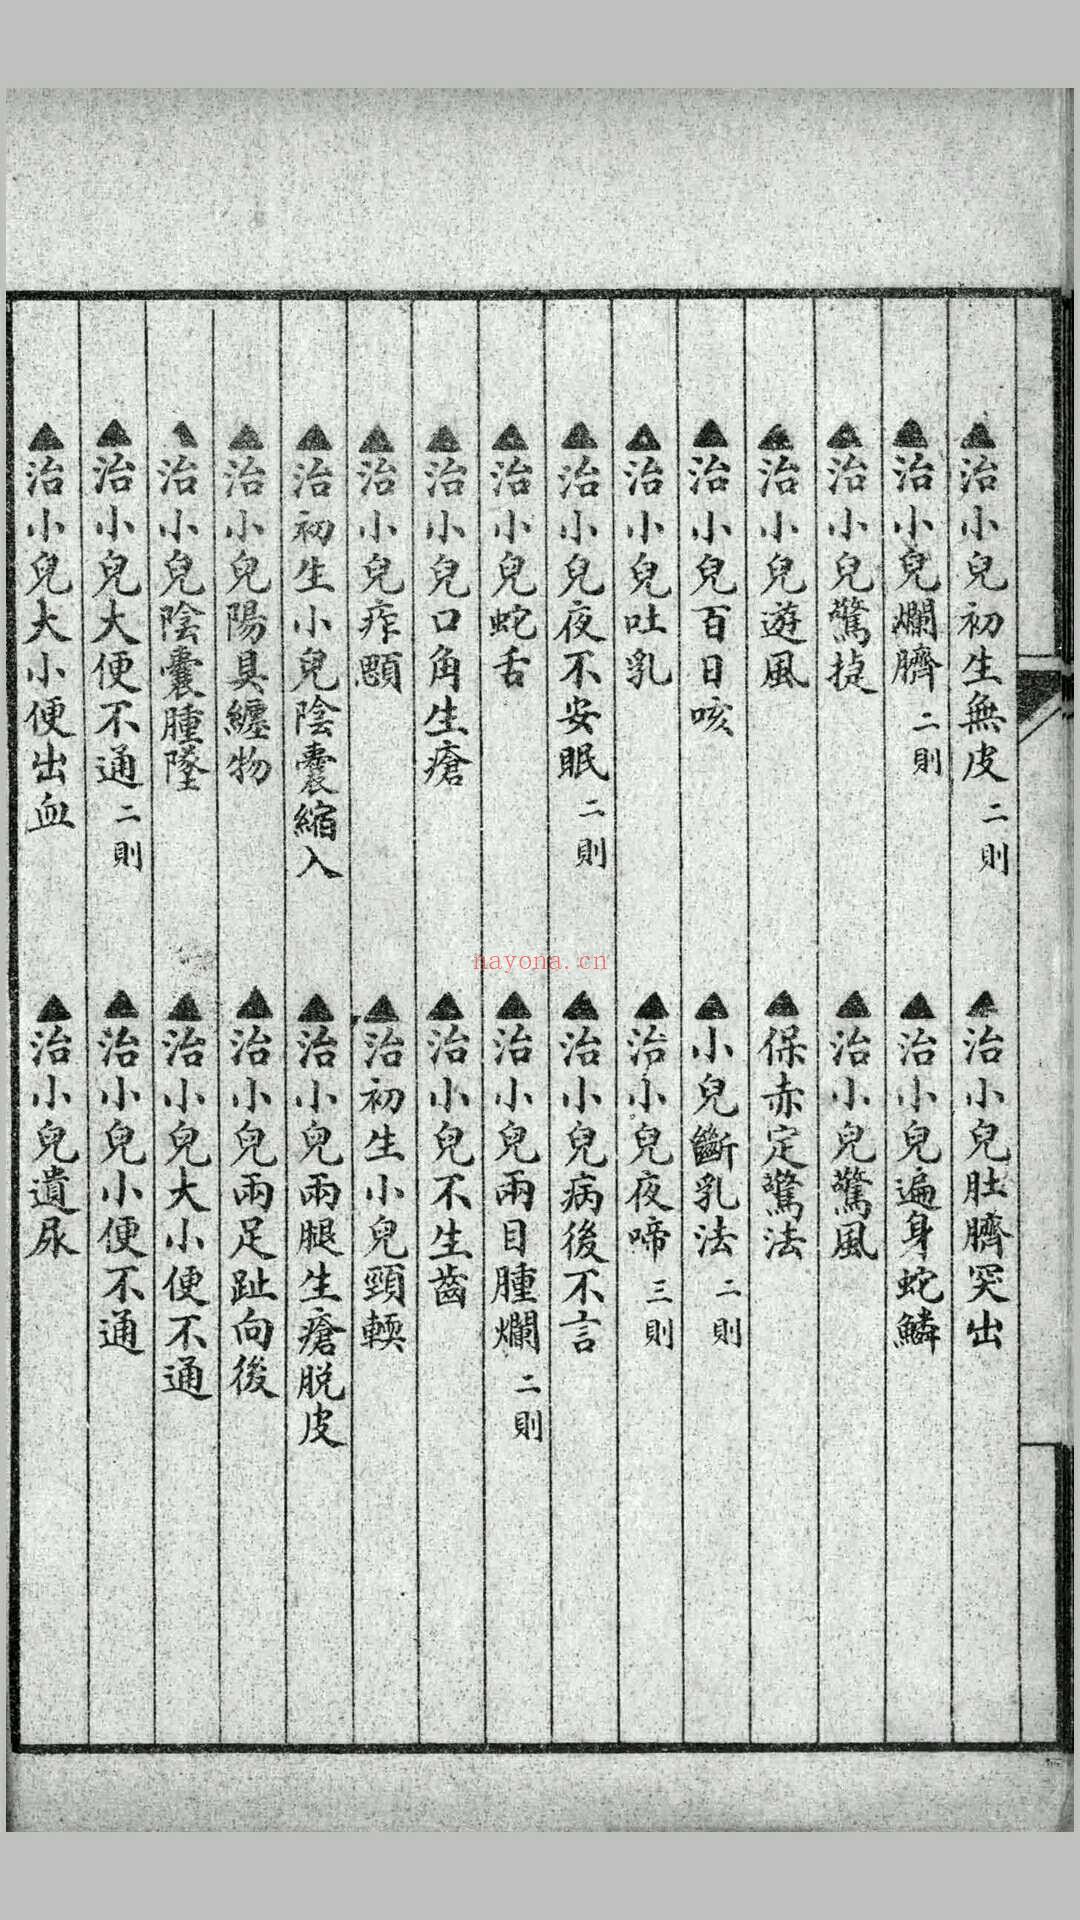 ▲治小兒初生無皮 二則 ▲治小兒肚臍突出
▲治小兒爛臍 二則 ▲治小兒遍身蛇鱗
▲治小兒驚 ▲治小兒驚風
▲治小兒遊風 ▲保赤定驚法
▲治小兒百日咳 ▲小兒斷乳法 二則
▲治小兒吐乳 ▲治小兒夜啼 三則
▲治小兒夜不安眠 二則 ▲治小兒病後不言
▲治小兒蛇舌 ▲治小兒兩目腫爛 二則
▲治小兒口角生瘡 ▲治小兒不生齒
▲治小兒痄顋 ▲治初生小兒頸輭
▲治初生小兒陰囊縮入 ▲治小兒兩腿生瘡脫皮
▲治小兒陽具纏物 ▲治小兒兩足趾向後
▲治小兒陰囊腫墜 ▲治小兒大小便不通
▲治小兒大便不通 二則 ▲治小兒小便不通
▲治小兒大小便出血 ▲治小兒遺尿
nayona.cn